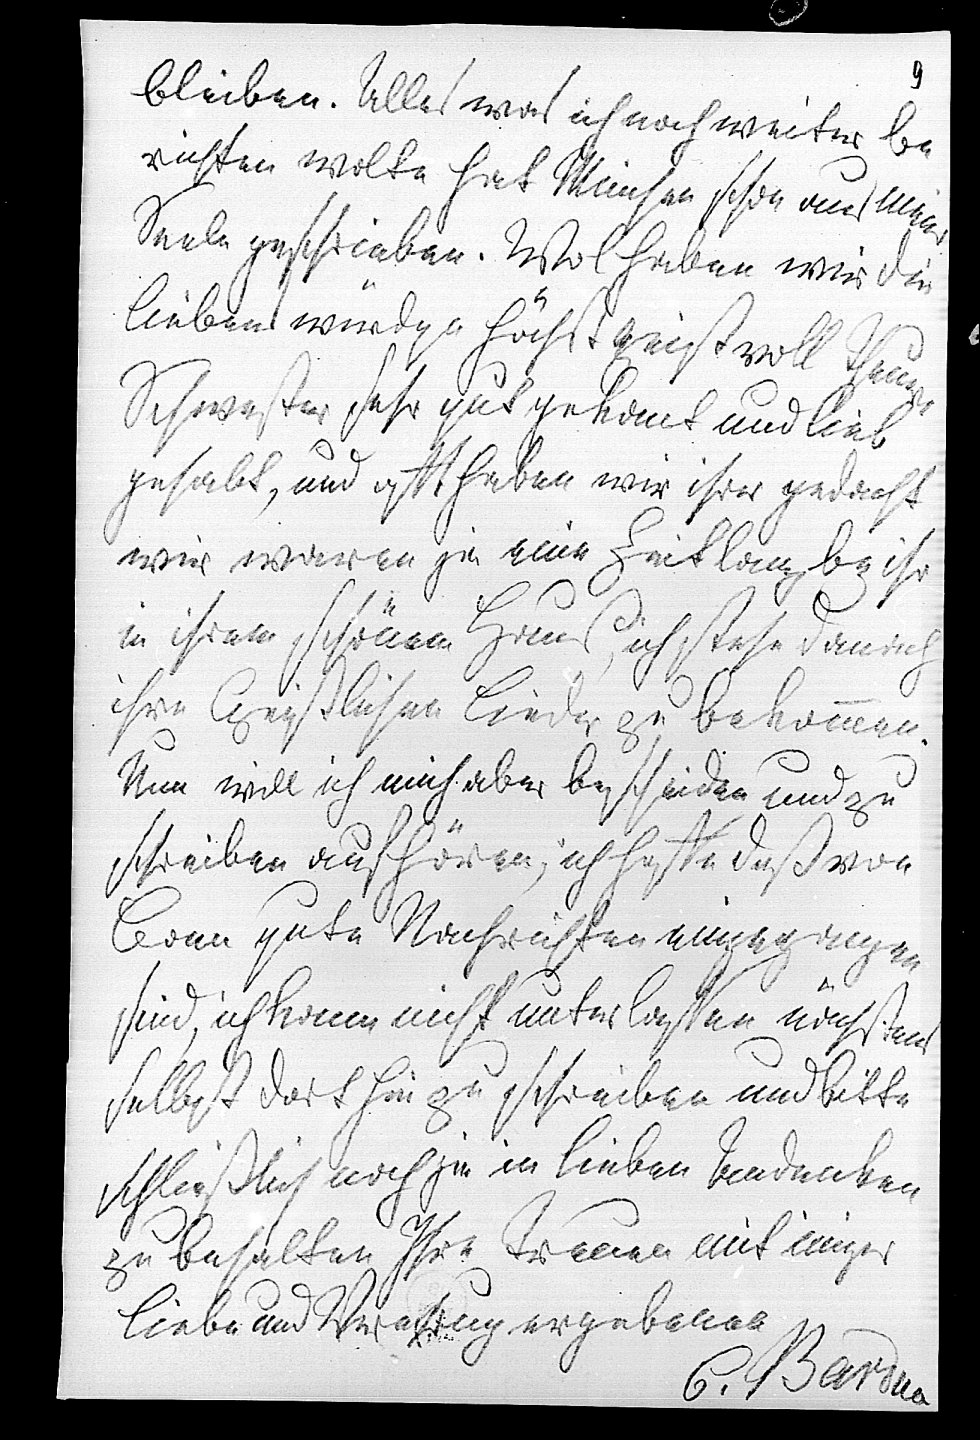 9
bleiben. Alles was ich noch weiter be
richten wolte hat Minchen schon aus meiner
Seele geschrieben. Wol haben wir die
liebenswürdge höchst geistvoll Theure
Schwester sehr gut gekant und lieb
gehabt, und oft haben wir ihrer gedacht
wir waren ja eine Zeitlang bey ihr
in ihrem schönen Haus, ich stehe danach
ihre Geistlichen Lieder zu bekommen.
Nun will ich mich aber bescheiden und zu
schreiben aufhören, ich hoffe daß von
Bonn gute Nachrichten eingegangen
sind, ich kann nicht unterlassen nächstens
selbst dorthin zu schreiben und bitte
schließlich noch ja in lieben Andenken
zu behalten Ihre treuen mit inniger
Liebe und Verehrung ergebenen
C. Bardua